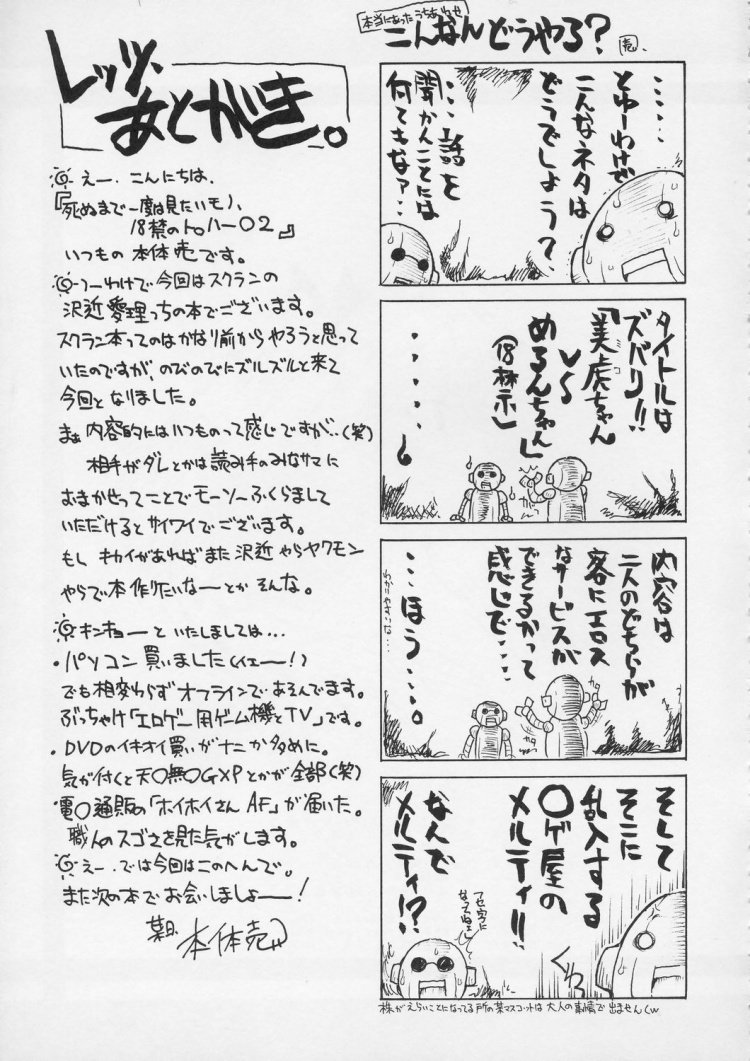 レッツ、
あとがき。
えー、こんにちは、
『死ぬまで一度は見たいモノ、
18禁のトゥハー〇2』
いつもの 本体売です。
つーわけで今回はスクランの
沢近愛理っちの本でございます。
スクラン本ってのはかなり前からやろうと思って
いたのですが、のびのびにズルズルと来て
今回となりました。
まぁ内容的にはいつものって感じですが…(笑)
相手がダレとかは読み手のみなサマに
おまかせってことでモーソーふくらまして
いただけるとサイワイでございます。
もし キカイがあればまた沢近やらヤクモン
やらで本作りたいなーとかそんな。
キンキョーといたしましては…
・パソコン買いました(イエー!)
でも相変わらずオフラインであそんでます。
ぶっちゃけ「エロゲー用ゲーム機とTV」です。
・DVDのイキオイ買いがナニか多めに。
気が付くと天〇無〇GXPとかが全部(笑)
電〇通販の「ホイホイさん AF」が届いた。
職人のスゴさを見た気がします。
えー、では今回はこのへんで。
また次の本でお会いしましょー!
本体売
本当にあったうちあわせ
こんなんどうやろ?
売、
・・・・・
とゆーわけで
こんなネタは
どうでしょう?
・・・話を
聞かんことには
何てもなァ・・
タイトルは
ズバリ!!
『美虎ちゃん
VS
めるんちゃん』
(18禁)
・・・・・・
内容は
二人のどちらが
客にエロス
なサービスが
できるかって
感じで・・・
・・・ほう・・・。
わかりやすいな…
そして
そこに
乱入する
〇ゲ屋の
メルティ!!
ぐわっ
なんで
メルティ!?
フセ字に
なってねェ
株がえらいことになってる所の某マスコットは大人の事情で出ませんくw